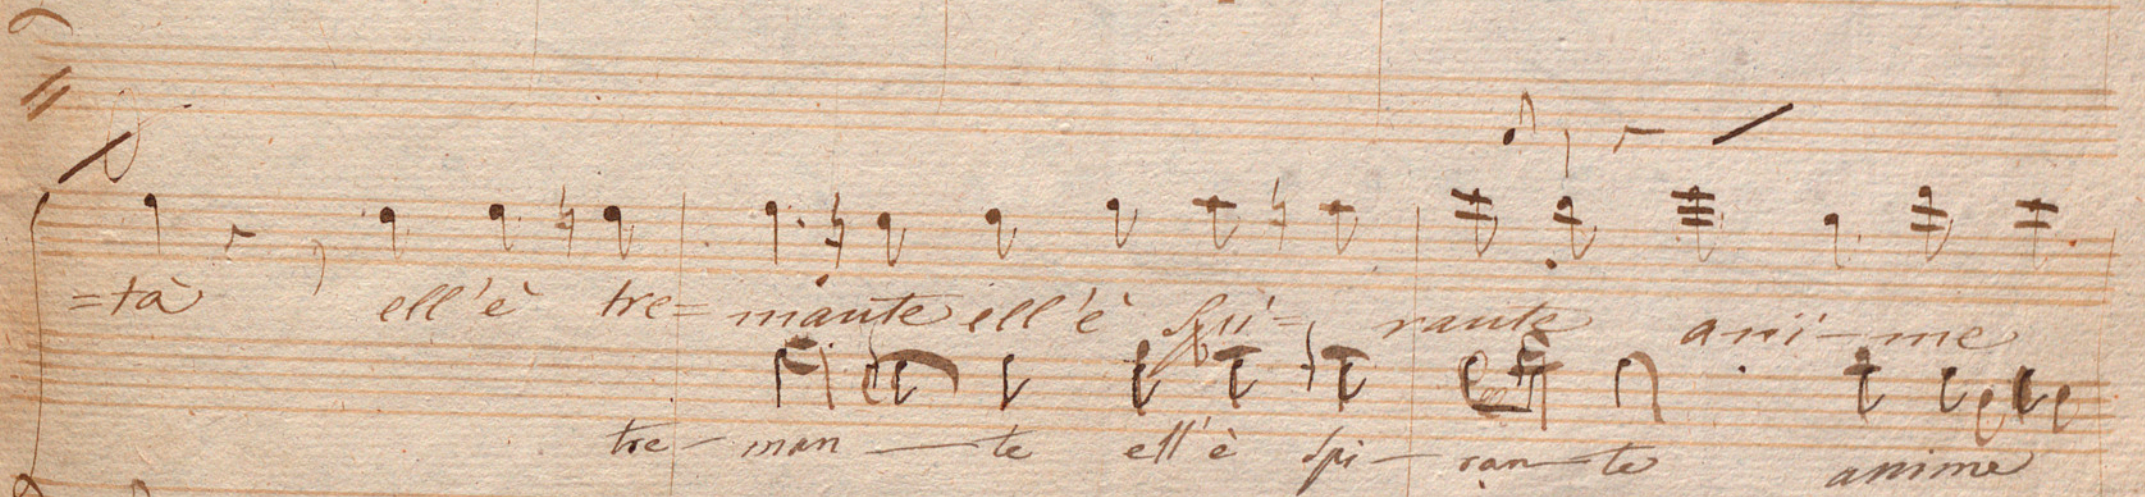 =tà ell'è tre= mante ell'è spi= rante ani-me
tre - man - te ell'è spi - ran - te anime